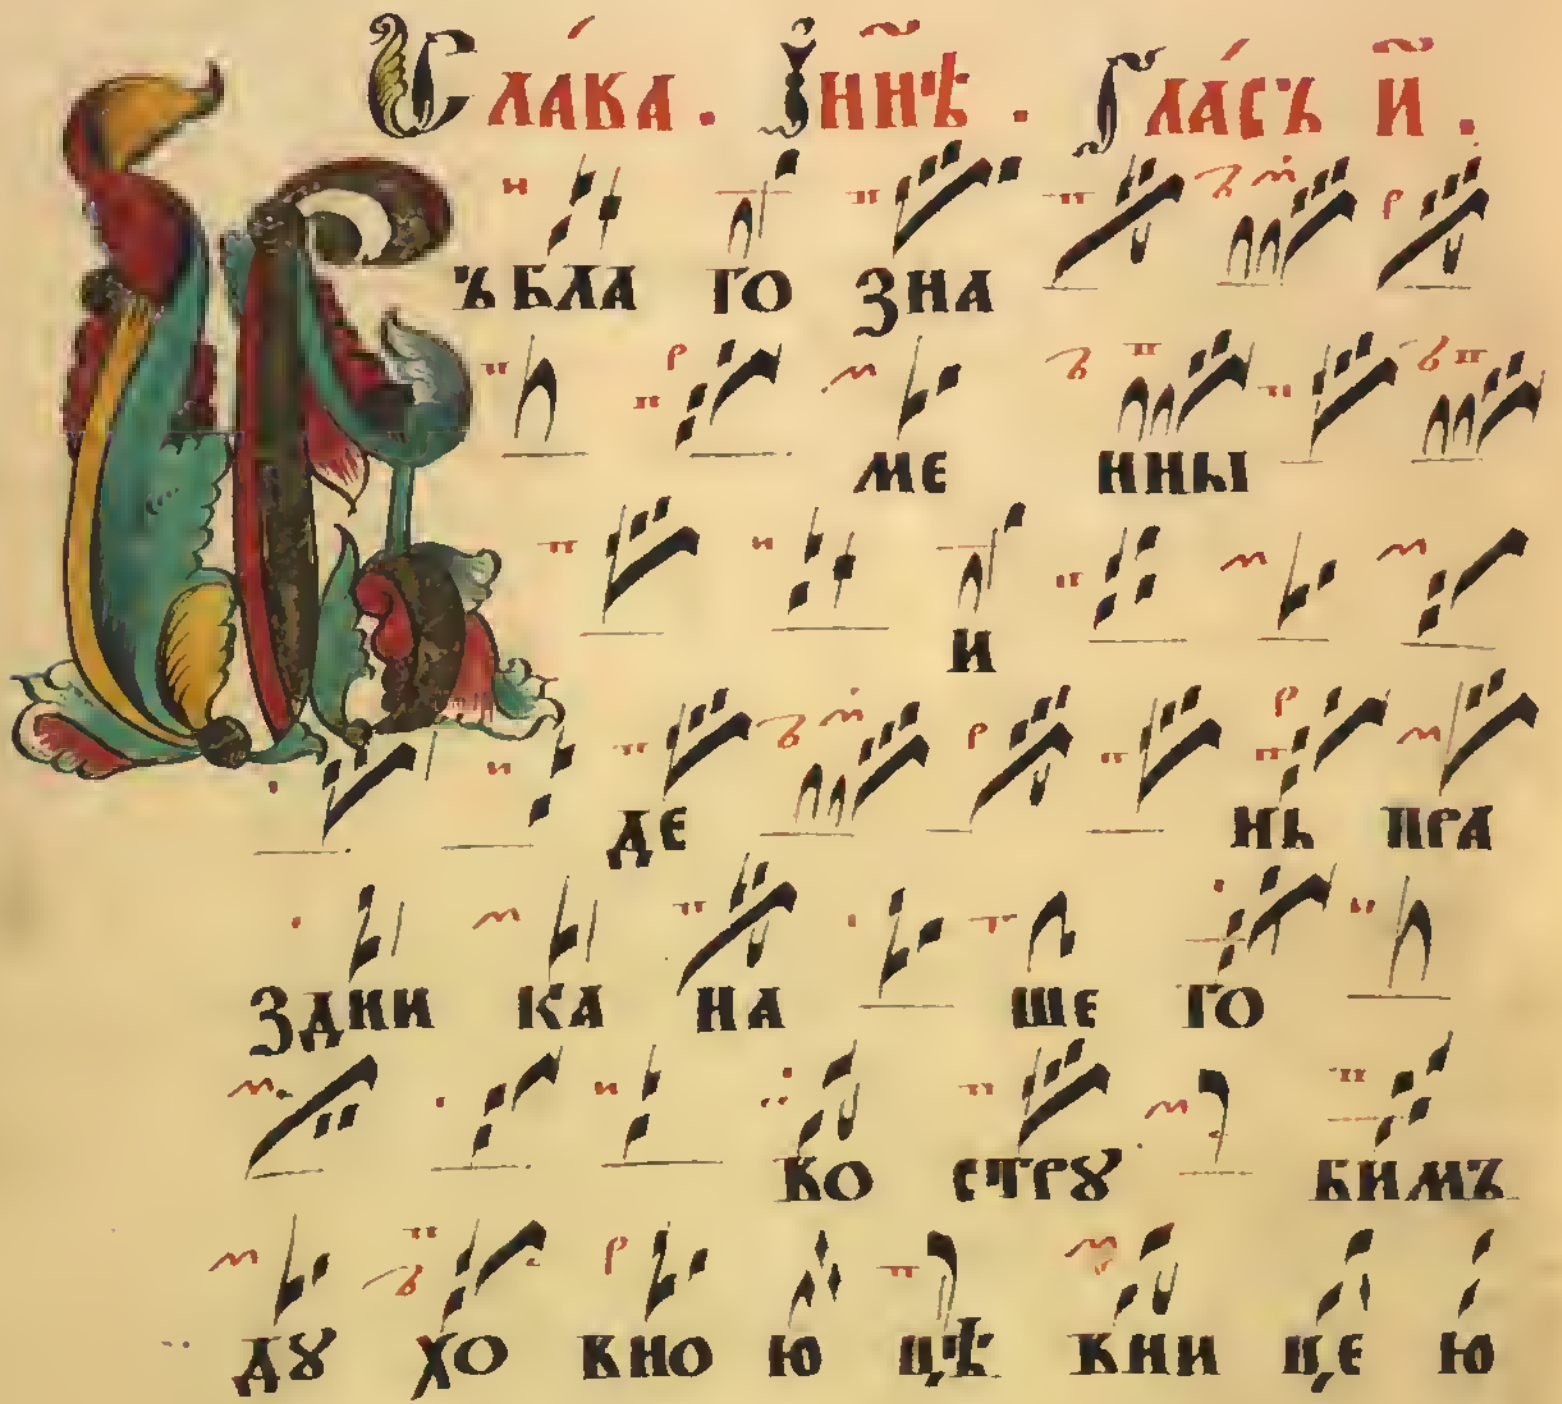 Сла́ва. І҆ н҃нѣ. Гла́съ и҃.
Въ бла го зна
ме нны
и
де нь пра
здни ка на ше го
во стрꙋ бимъ
дꙋ хо вно ю цѣ вни це ю